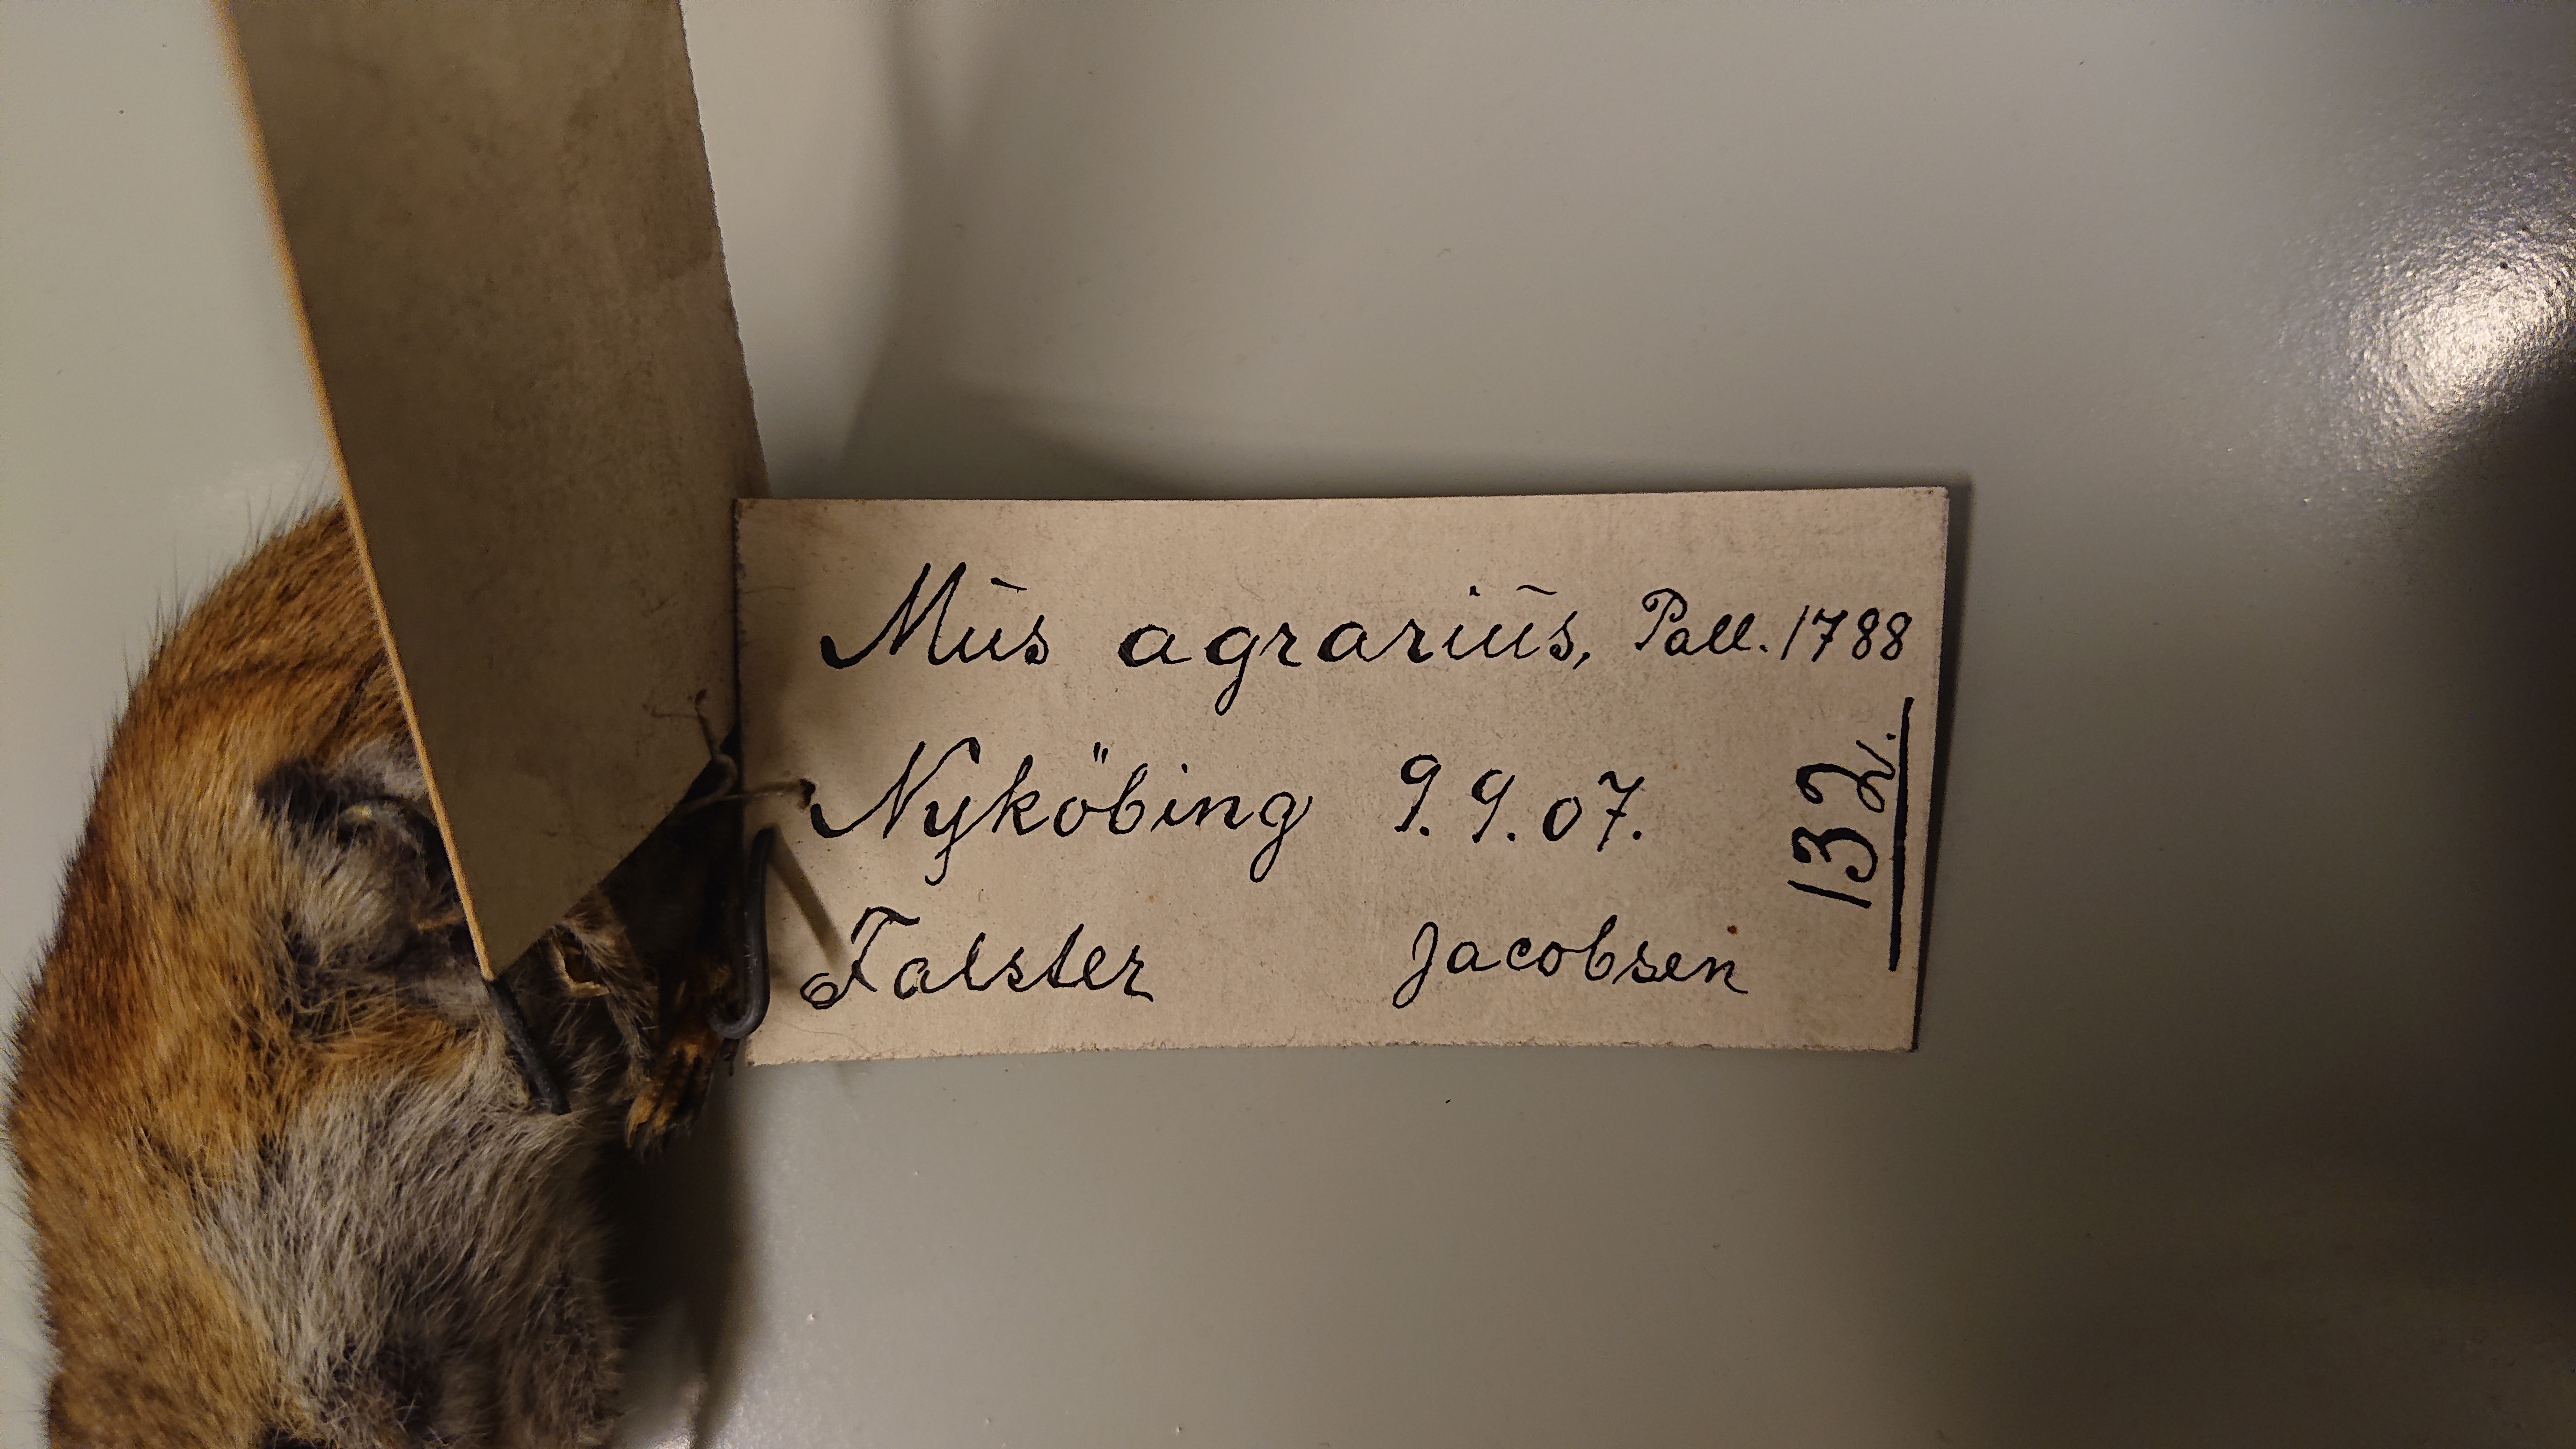 Mūs agrariūs, Pall. 1788
Nyköbing 9.9.07.
Falster Jacobsen
132.